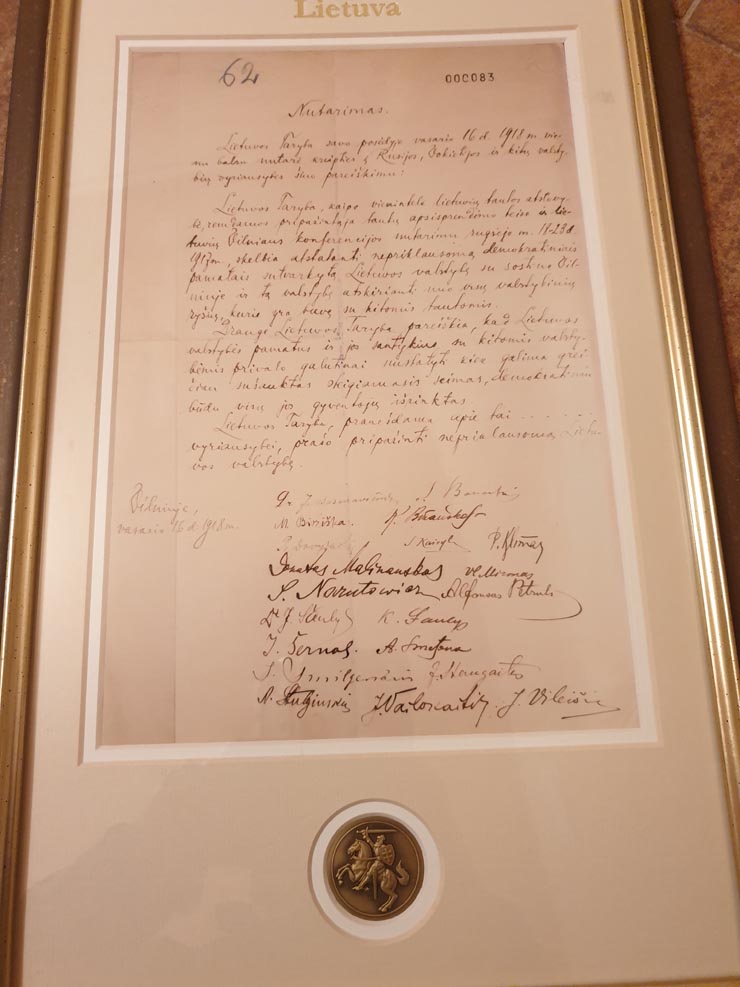 Lietuva
62
000083
Nutarimas.
Lietuvos Taryba savo posėdyje vasario 16 d. 1918 m. vien
nu balsu nutarė kreiptis į Rusijos, Vokietijos ir kitų valsty-
bių vyriausybes šiuo pareiškimu:
Lietuvos Taryba, kaipo vienintelė lietuvių tautos atstovy-
bė, remdamos pripažintąja tautų apsisprendimo teise ir lie-
tuvių Vilniaus konferencijos nutarimu rugsėjo m. 18-23 d.
1917 m., skelbia atstatanti nepriklausomą demokratiniais
pamatais sutvarkytą Lietuvos valstybę su sostine Vil-
niuje ir tą valstybę atskirianti nuo visų valstybinių
ryšių, kurie yra buvę su kitomis tautomis.
Drauge Lietuvos Taryba pareiškia, kad Lietuvos
valstybės pamatus ir jos santykius su kitomis valsty-
bėmis privalo galutinai nustatyti kiek galima grei-
čiau sušauktas steigiamasis seimas, demokratiniu
būdu visų jos gyventojų išrinktas.
Lietuvos Taryba, pranešdama apie tai . . . . . .
vyriausybei, prašo pripažinti nepriklausomą Lietu-
vos valstybę.
Vilniuje,
vasario 16 d. 1918 m.
Dr. J. Basanavičius S. Banaitis
M. Biržiška K. Bizauskas
P. Dovydaitis S. Kairys P. Klimas
Donatas Malinauskas Vl. Mironas
S. Narutowicz Alfonsas Petrulis
Dr J. Šaulys K. Šaulys
J. Šernas A. Smetona
J. Smilgevičius J. Staugaitis
A. Stulginskis J. Vailokaitis J. Vileišis